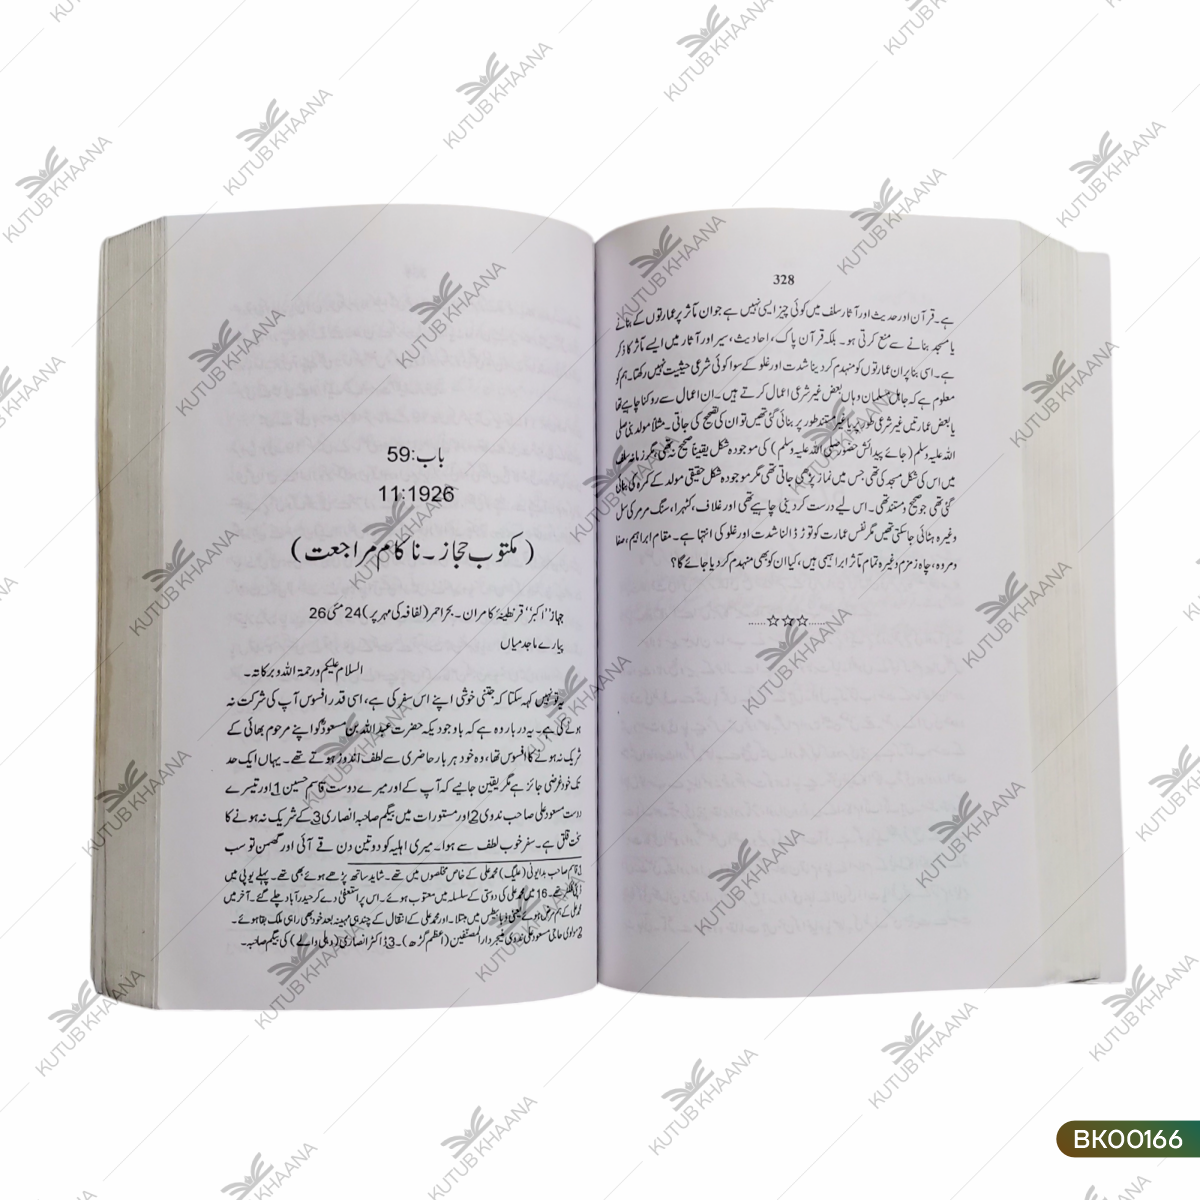 328
ہے۔ قرآن اور حدیث اور آثار سلف میں کوئی چیز ایسی نہیں ہے جو ان مآثر پر عمارتوں کے بنانے
یا مسجد بنانے سے منع کرتی ہو۔ بلکہ قرآن پاک، احادیث، سیر اور آثار میں ایسے مآثر کا ذکر
ہے۔ اسی بنا پر ان عمارتوں کو منہدم کر دینا شدت اور غلو کے سوا کوئی شرعی حیثیت نہیں رکھتا۔ ہم کو
معلوم ہے کہ جاہل مسلمان وہاں بعض غیر شرعی اعمال کرتے ہیں۔ ان اعمال سے روکنا چاہیے تھا
یا بعض عمارتیں غیر شرعی طور پر یا غیر مستند طور پر بنائی گئی تھیں تو ان کی تصحیح کی جاتی۔ مثلاً مولد نبی صلی
اللہ علیہ وسلم (جائے پیدائش حضور صلی اللہ علیہ وسلم) کی موجودہ شکل یقیناً صحیح نہ تھی، مگر زمانہ سلف
میں اس کی شکل مسجد کی تھی جس میں نماز پڑھی جاتی تھی مگر موجودہ شکل حقیقی مولد کے کمرہ کی بنائی
گئی تھی جو صحیح و مستند تھی۔ اس لیے درست کر دینی چاہیے تھی اور غلاف، کٹہرا، سنگ مرمر کی سل
وغیرہ ہٹائی جا سکتی تھیں مگر نفس عمارت کو توڑ ڈالنا شدت اور غلو کی انتہا ہے۔ مقام ابراہیم، صفا
و مروہ، چاہ زمزم وغیرہ تمام مآثر ابراہیمی ہیں، کیا ان کو بھی منہدم کر دیا جائے گا؟
......☆☆☆......
باب:59
11:1926
(مکتوب حجاز۔ ناکام مراجعت)
جہاز "اکبر" قرنطینۂ کامران۔ بحر احمر (لفافہ کی مہر پر) 24 مئی 26
پیارے ماجد میاں
السلام علیکم ورحمۃ اللہ وبرکاتہ۔
یہ تو نہیں کہہ سکتا کہ جتنی خوشی اپنے اس سفر کی ہے، اسی قدر افسوس آپ کی شرکت نہ
ہونے کی ہے۔ یہ دربار وہ ہے کہ باوجودیکہ حضرت عبداللہ بن مسعودؓ کو اپنے مرحوم بھائی کے
شریک نہ ہونے کا افسوس تھا، وہ خود ہر بار حاضری سے لطف اندوز ہوتے تھے۔ یہاں ایک حد
تک خود غرضی جائز ہے مگر یقین جانیے کہ آپ کے اور میرے دوست قاسم حسین 1 اور تیسرے
دوست مسعود علی صاحب ندوی 2 اور مستورات میں بیگم صاحبہ انصاری 3 کے شریک نہ ہونے کا
سخت قلق ہے۔ سفر خوب لطف سے ہوا۔ میری اہلیہ کو دو تین دن قے آئی اور گھمن تو سب
1 قاسم صاحب بدایونی (علیگ) محمد علی کے خاص مخلصوں میں تھے۔ شاید ساتھ پڑھے ہوئے بھی تھے۔ پہلے یوپی میں
ڈپٹی کلکٹر تھے۔ 16ء میں محمد علی کی دوستی کے سلسلہ میں معتوب ہوئے۔ اس پر استعفیٰ دے کر حیدرآباد چلے گئے۔ آخر میں
محمد علی کے ہم مرض ہوئے یعنی ذیابیطس میں مبتلا۔ اور محمد علی کے انتقال کے چند ہی مہینہ بعد خود بھی راہی ملک بقا ہوئے۔
2 مولوی حاجی مسعود علی ندوی منیجر دارالمصنفین (اعظم گڑھ)۔ 3 ڈاکٹر انصاری (دہلی والے) کی بیگم صاحبہ۔
KUTUB KHAANA
BK00166